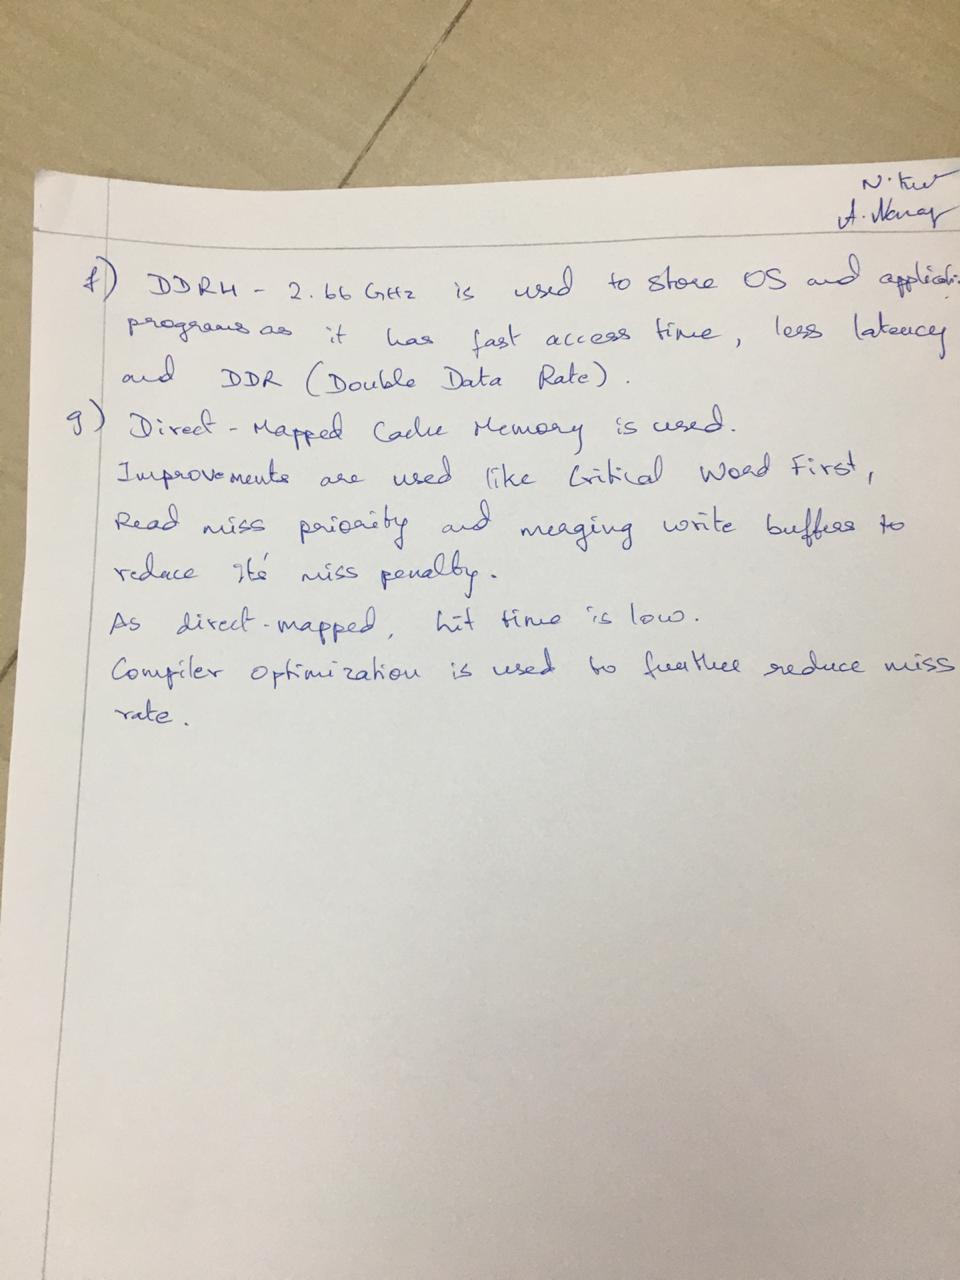 N.
A.
f) DDR4 - 2.66 GHz is used to store OS and
programs as it has fast access time, less latency
and DDR (Double Data Rate).
g) Direct-Mapped Cache Memory is used.
Improvements are used like Critical Word First,
Read miss priority and merging write buffers to
reduce its miss penalty.
As direct-mapped, hit time is low.
Compiler optimization is used to further reduce miss
rate.